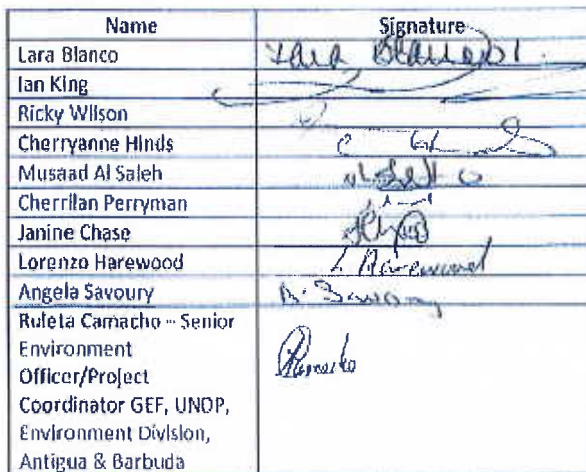 Name Signature
Lara Blanco Lara Blanco
Ian King
Ricky Wilson
Cherryanne Hinds
Musaad Al Saleh
Cherrilan Perryman
Janine Chase
Lorenzo Harewood L Harewood
Angela Savoury A. Savoury
Ruleta Camacho – Senior
Environment
Officer/Project
Coordinator GEF, UNDP,
Environment Division,
Antigua & Barbuda